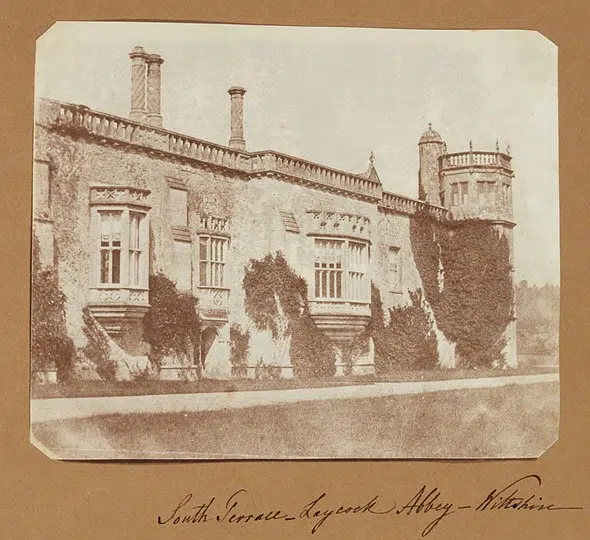 South Terrace - Laycock Abbey - Wiltshire